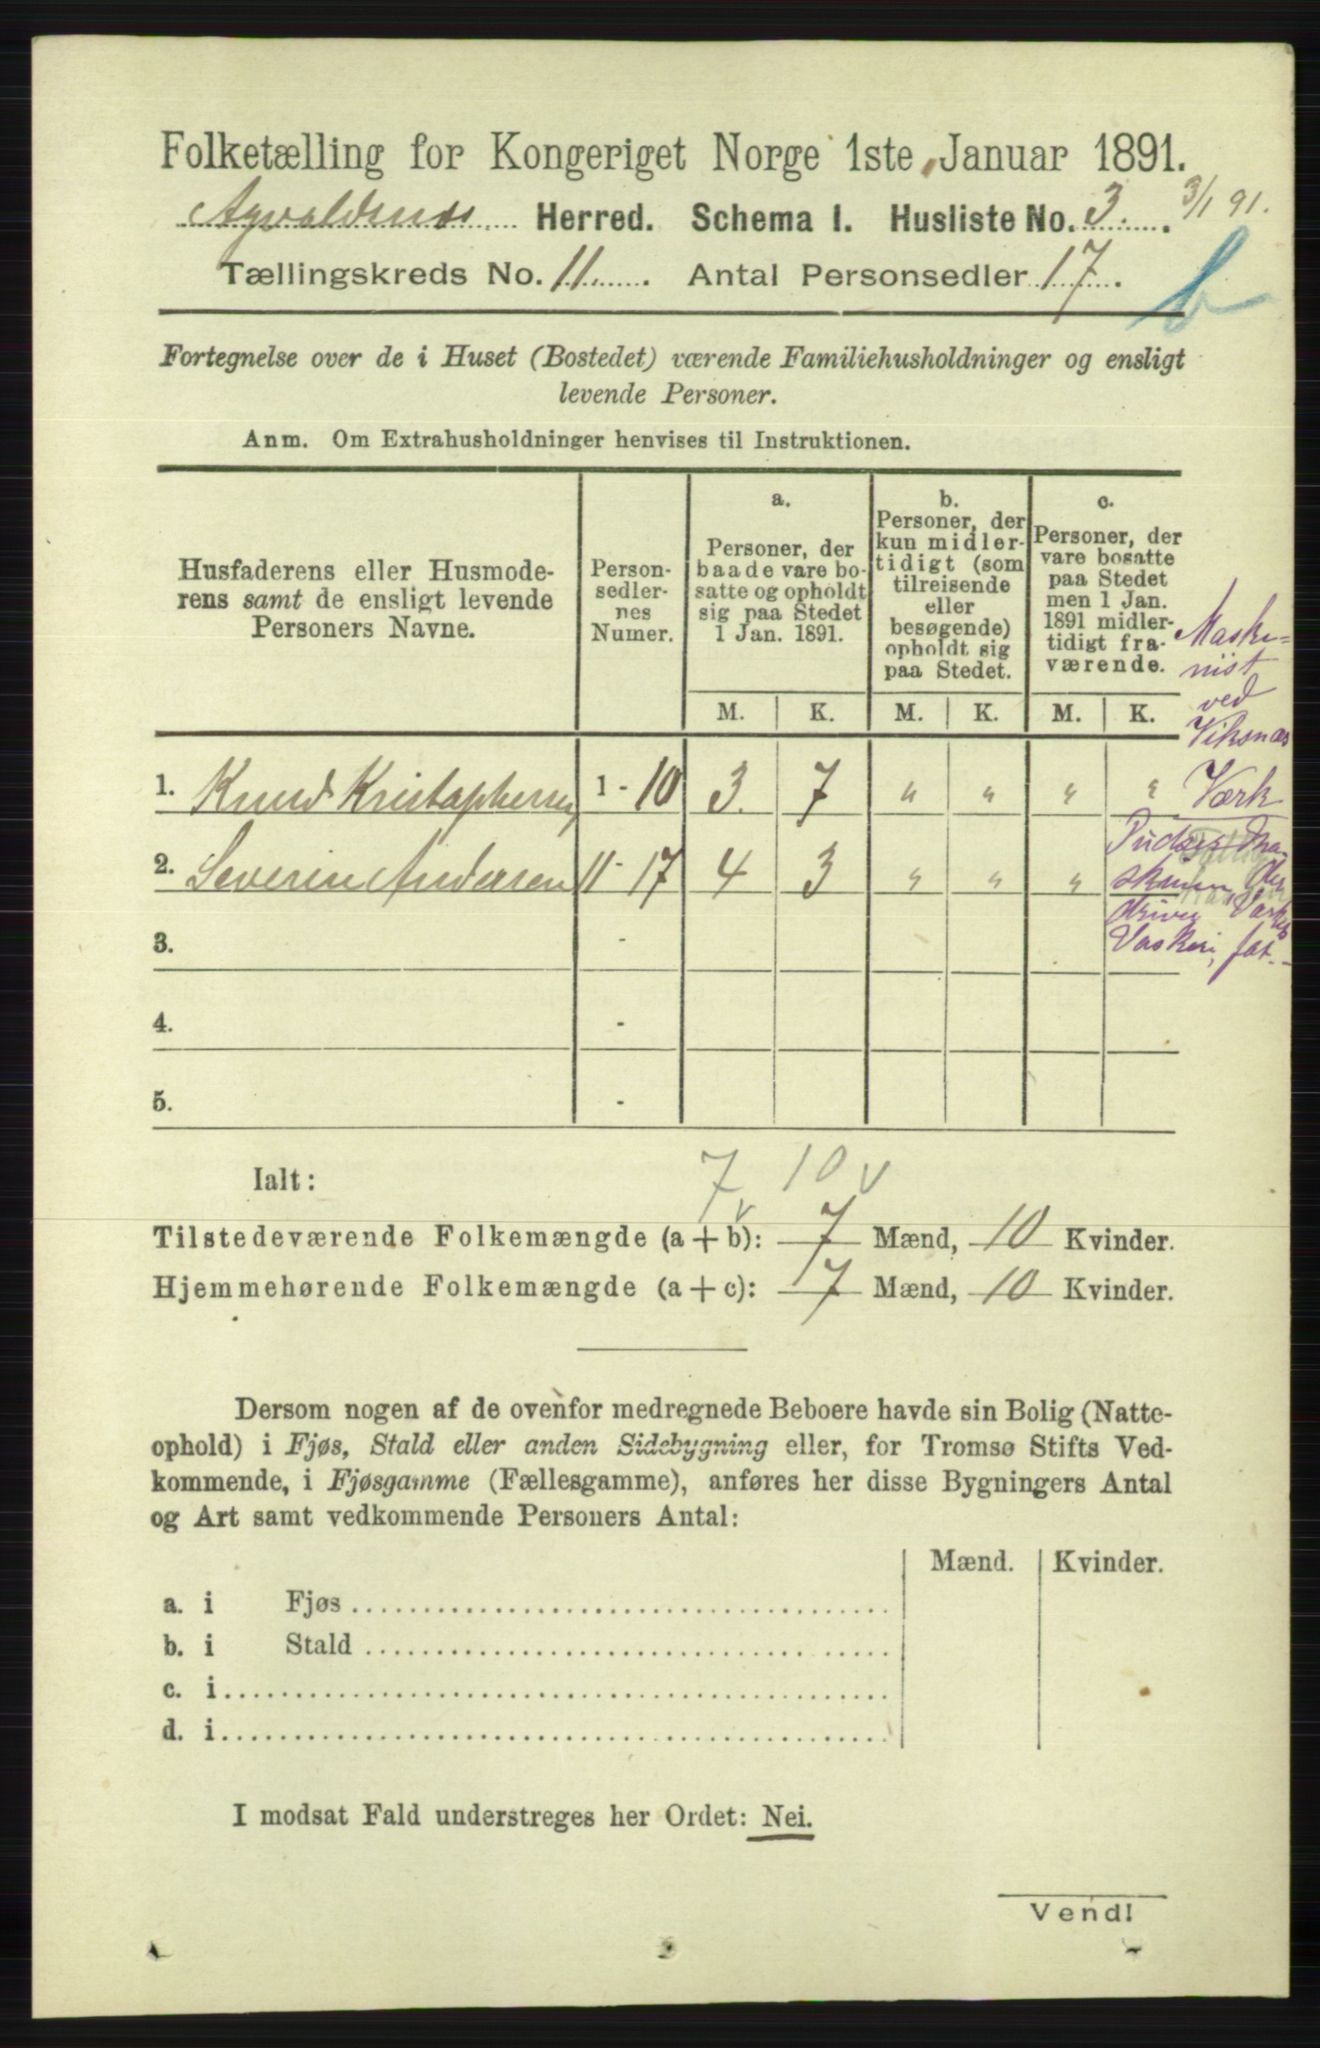 Folketælling for Kongeriget Norge 1ste Januar 1891.
Agvaldsnes Herred. Schema I. Husliste No. 3. 3/1 91.
Tællingskreds No. 11. Antal Personsedler 17.
b
Fortegnelse over de i Huset (Bostedet) værende Familiehusholdninger og ensligt
levende Personer.
Anm. Om Extrahusholdninger henvises til Instruktionen.
Husfaderens eller Husmode-
rens samt de ensligt levende
Personers Navne.
Person-
sedler-
nes
Numer.
a.
Personer, der
baade vare bo-
satte og opholdt
sig paa Stedet
1 Jan. 1891.
b.
Personer, der
kun midler-
tidigt (som
tilreisende
eller
besøgende)
opholdt sig
paa Stedet.
c.
Personer, der
vare bosatte
paa Stedet
men 1 Jan.
1891 midler-
tidigt fra-
værende.
M. K. M. K. M. K.
Maski-
nist
ved
Viksnæs
Værk
1. Knud Kristophersen 1 - 10 3. 7 " " " "
2. Severin Andersen 11 - 17 4 3 " " "
Pudser Ma-
skinen der
driver Værkets
Vaskeri, fat.
3. -
4. -
5. -
Ialt:
7 v 10 v
Tilstedeværende Folkemængde (a + b): 7 Mænd, 10 Kvinder.
Hjemmehørende Folkemængde (a + c): 7 Mænd, 10 Kvinder.
Dersom nogen af de ovenfor medregnede Beboere havde sin Bolig (Natte-
ophold) i Fjøs, Stald eller anden Sidebygning eller, for Tromsø Stifts Ved-
kommende, i Fjøsgamme (Fællesgamme), anføres her disse Bygningers Antal
og Art samt vedkommende Personers Antal:
Mænd. Kvinder.
a. i Fjøs
b. i Stald
c. i
d. i
I modsat Fald understreges her Ordet: Nei.
Vend!